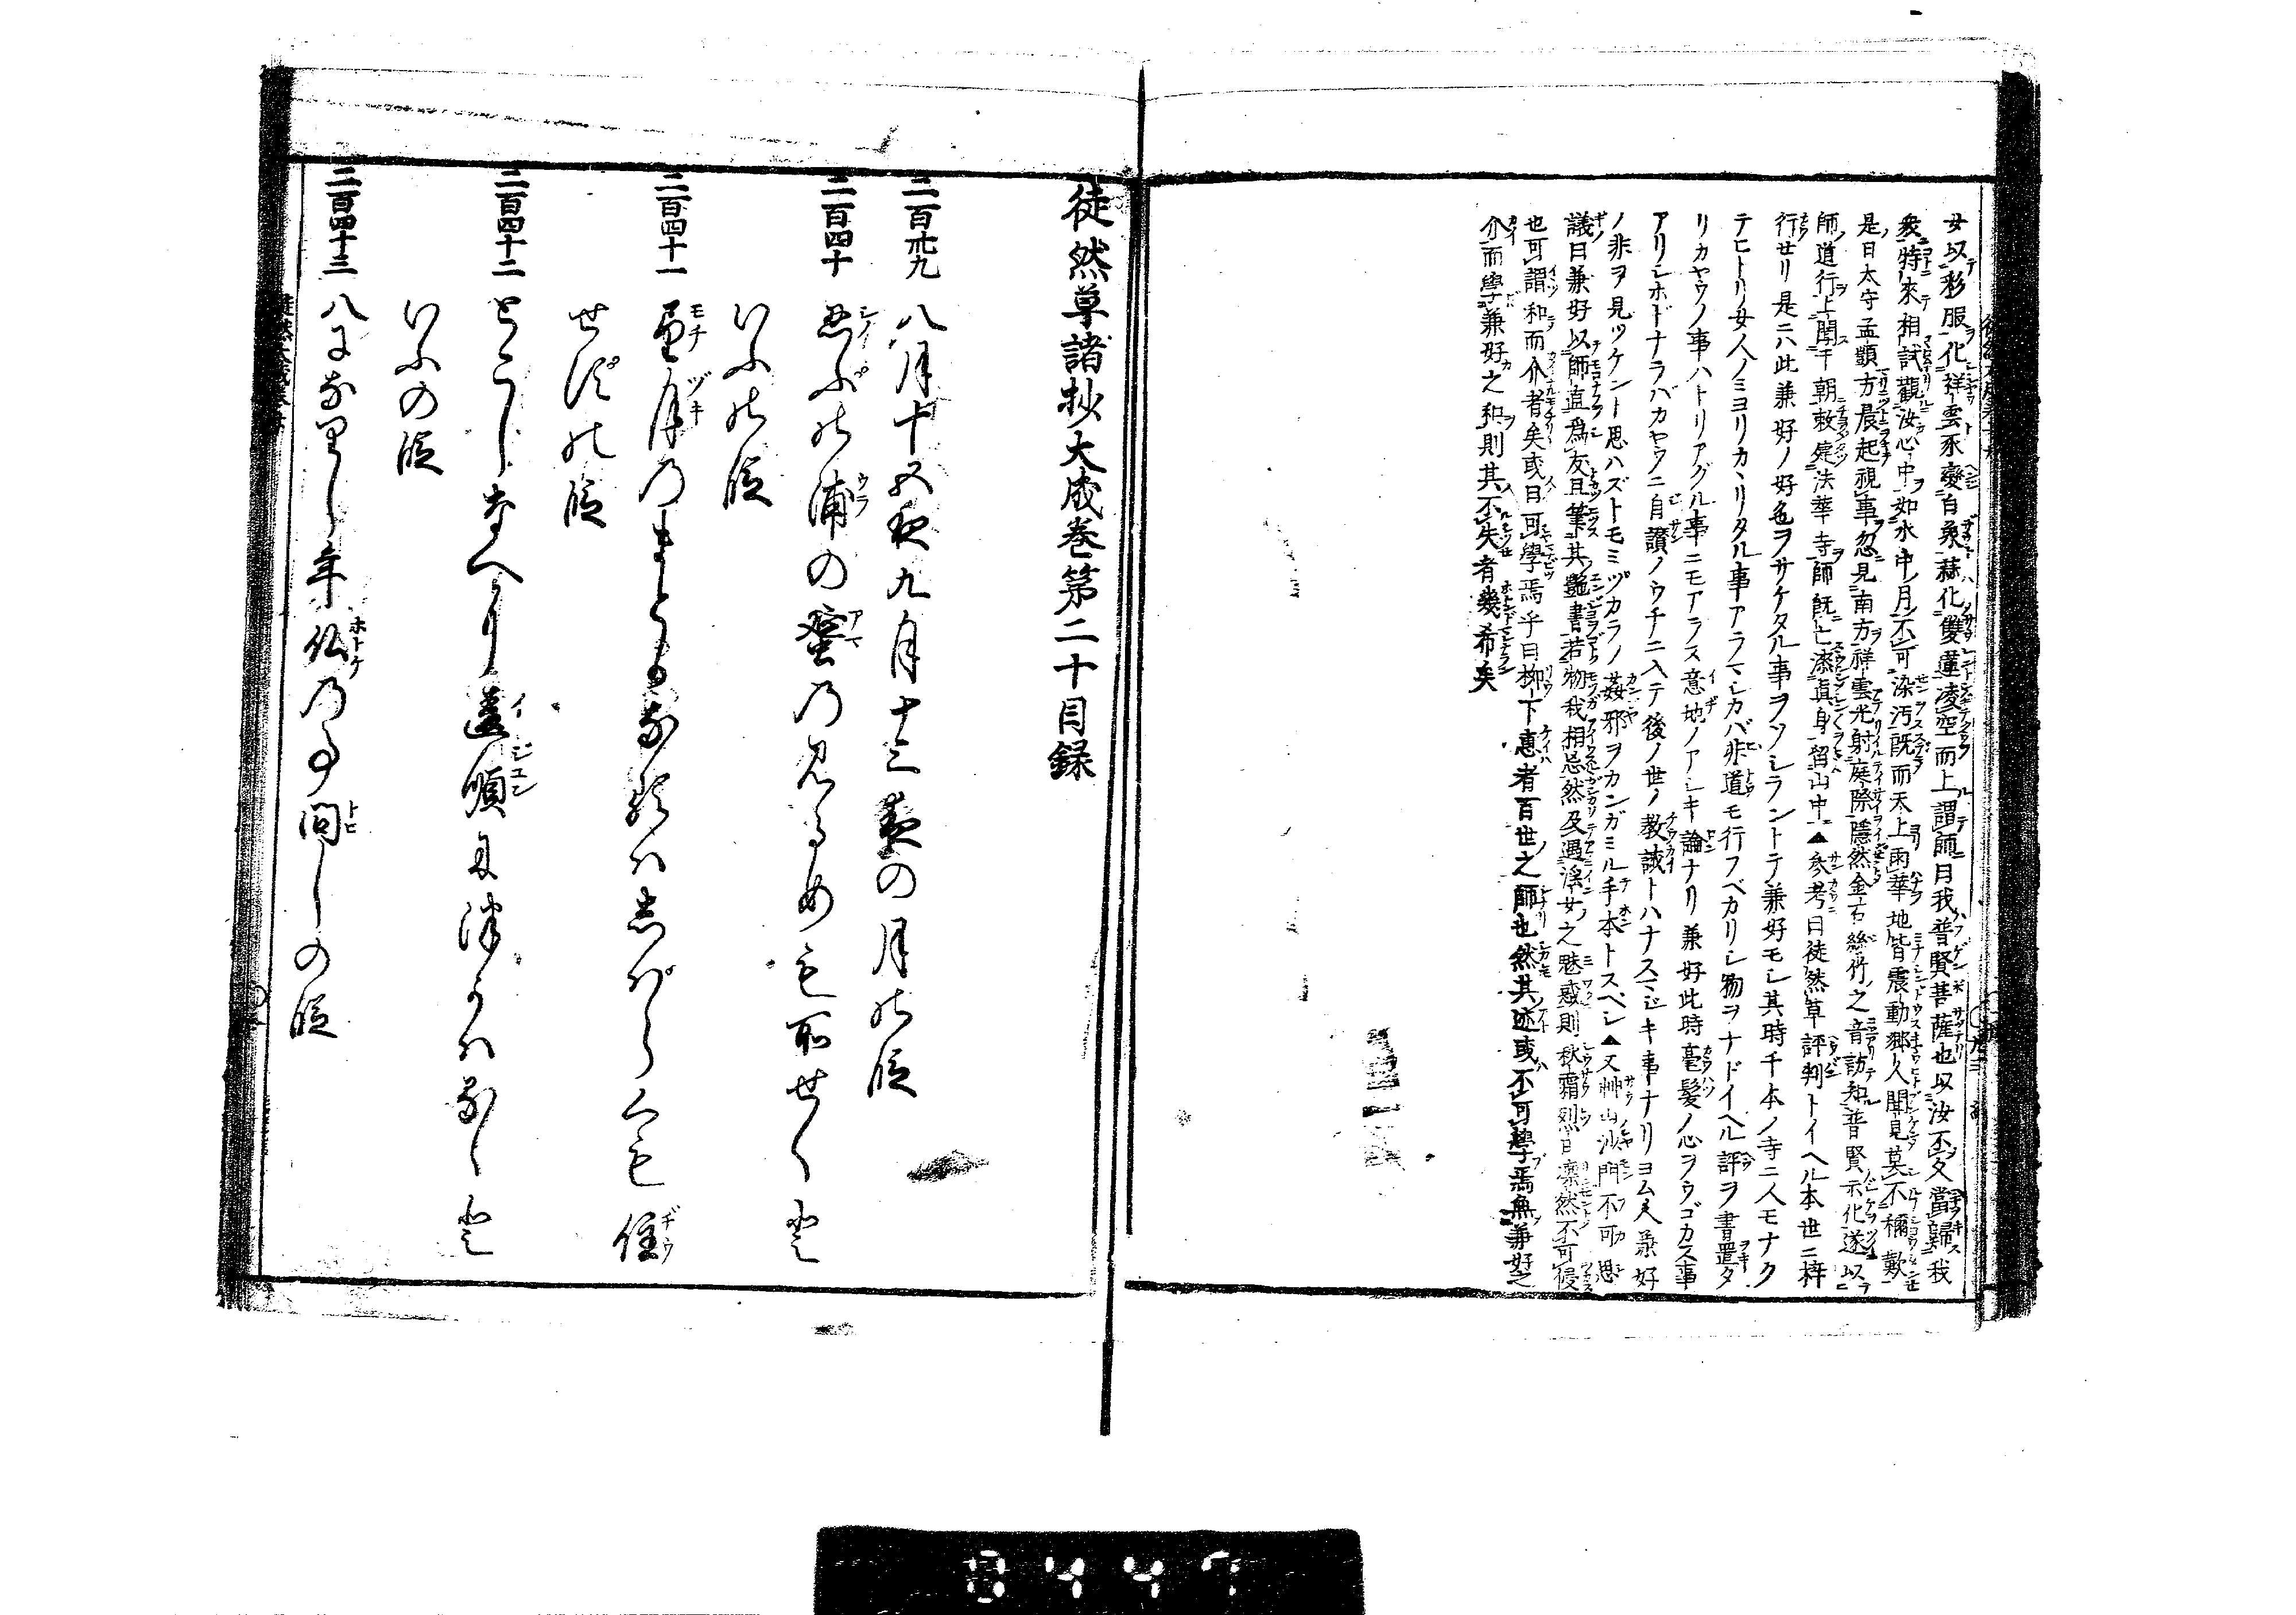 女以彩服化祥雲豕變白象蒜化雙蓮凌空而上謂師曰我普賢菩薩也以汝不久當歸我
衆特來相試觀汝心中如水中月不可染汚既而天上雨華地皆震動郷人聞見莫不稱歎
是日太守孟顗方晨起視事忽見南方祥雲光射庭際隱然金石絲竹之音訪知普賢示化遂以
師道行上聞于朝敕建法華寺師既亡漆眞身留山中▲參考曰徒然草評判トイヘル本世ニ梓
行セリ是ニハ此兼好ノ好色ヲサケタル事ヲソシラントテ兼好モシ其時千本ノ寺ニ人モナク
テヒトリ女人ノミヨリカヽリタル事アラマシカバ非道モ行フベカリシ物ヲナドイヘル評ヲ書置タ
リカヤウノ事ハトリアグル事ニモアラス意地ノアシキ論ナリ兼好此時毫髪ノ心ヲウゴカス事
アリシホドナラバカヤウニ自讃ノウチニ入テ後ノ世ノ教誡トハナスマジキ事ナリヨム人兼好
ノ非ヲ見ツケント思ハズトモミヅカラノ姦邪ヲカンガミル手本トスベシ▲又艸山沙門不可思
議曰兼好以師直爲友且筆其艶書若物我相忌然及遇淫女之魅惑則秋霜烈日凛然不可侵
也可謂和而介者矣或曰可學焉乎曰柳下惠者百世之師也然其迹或不可學焉無兼好之
介而學兼好之和則其不失者幾希矣
徒然草諸抄大成卷第二十目録
二百卅九 八月十五夜九月十三夜の月の段
二百四十 忍ぶの浦の蜑の見るめも所せくと
いふの段
二百四十一 望月のまとかなる事はしばらくも住
せずの段
二百四十二 とこしなへに違順に使はるゝと
いふの段
二百四十三 八になりし年仏の事問しの段